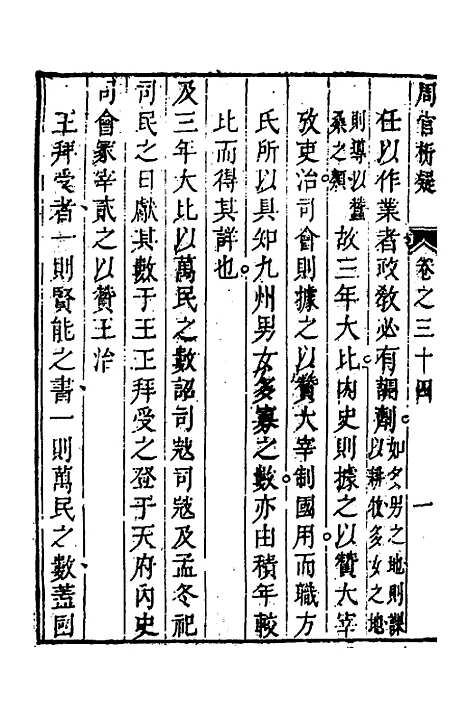 周官析疑 卷之三十四 一
任以作業者政敎必有調劑如多男之地則課以耕牧多女之地
則導以蠶桑之類故三年大比內史則據之以贊大宰
攷吏治司會則據之以贊大宰制國用而職方
氏所以具知九州男女多寡之數亦由積年較
比而得其詳也
及三年大比以萬民之數詔司宼司宼及孟冬祀
司民之日獻其數于王王拜受之登于天府內史
司會冢宰貳之以贊王治
王拜受者一則賢能之書一則萬民之數蓋國